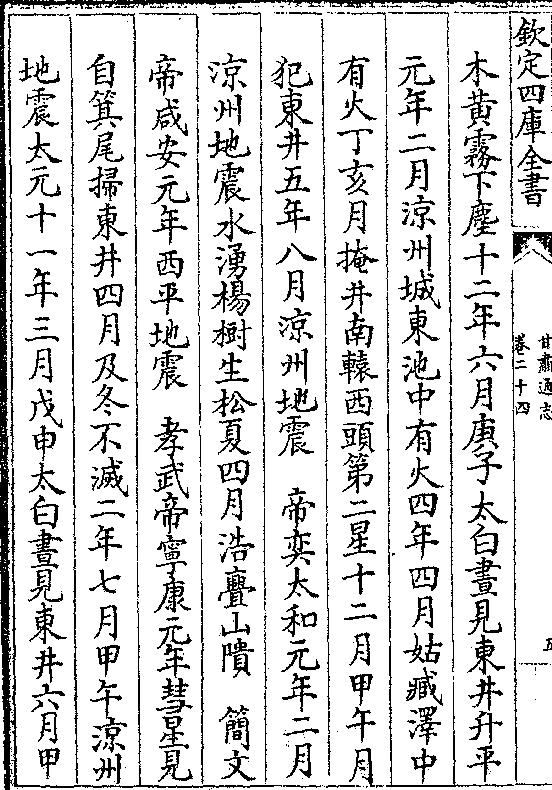 欽定四庫全書
甘肅通志
卷二十四
五
木黃霧下塵十二年六月庚子太白晝見東井升平
元年二月涼州城東池中有火四年四月姑臧澤中
有火丁亥月掩井南轅西頭第二星十二月甲午月
犯東井五年八月涼州地震 帝奕太和元年二月
涼州地震水湧楊樹生松夏四月浩亹山隤 簡文
帝咸安元年西平地震 孝武帝寧康元年彗星見
自箕尾掃東井四月及冬不滅二年七月甲午涼州
地震太元十一年三月戊申太白晝見東井六月甲